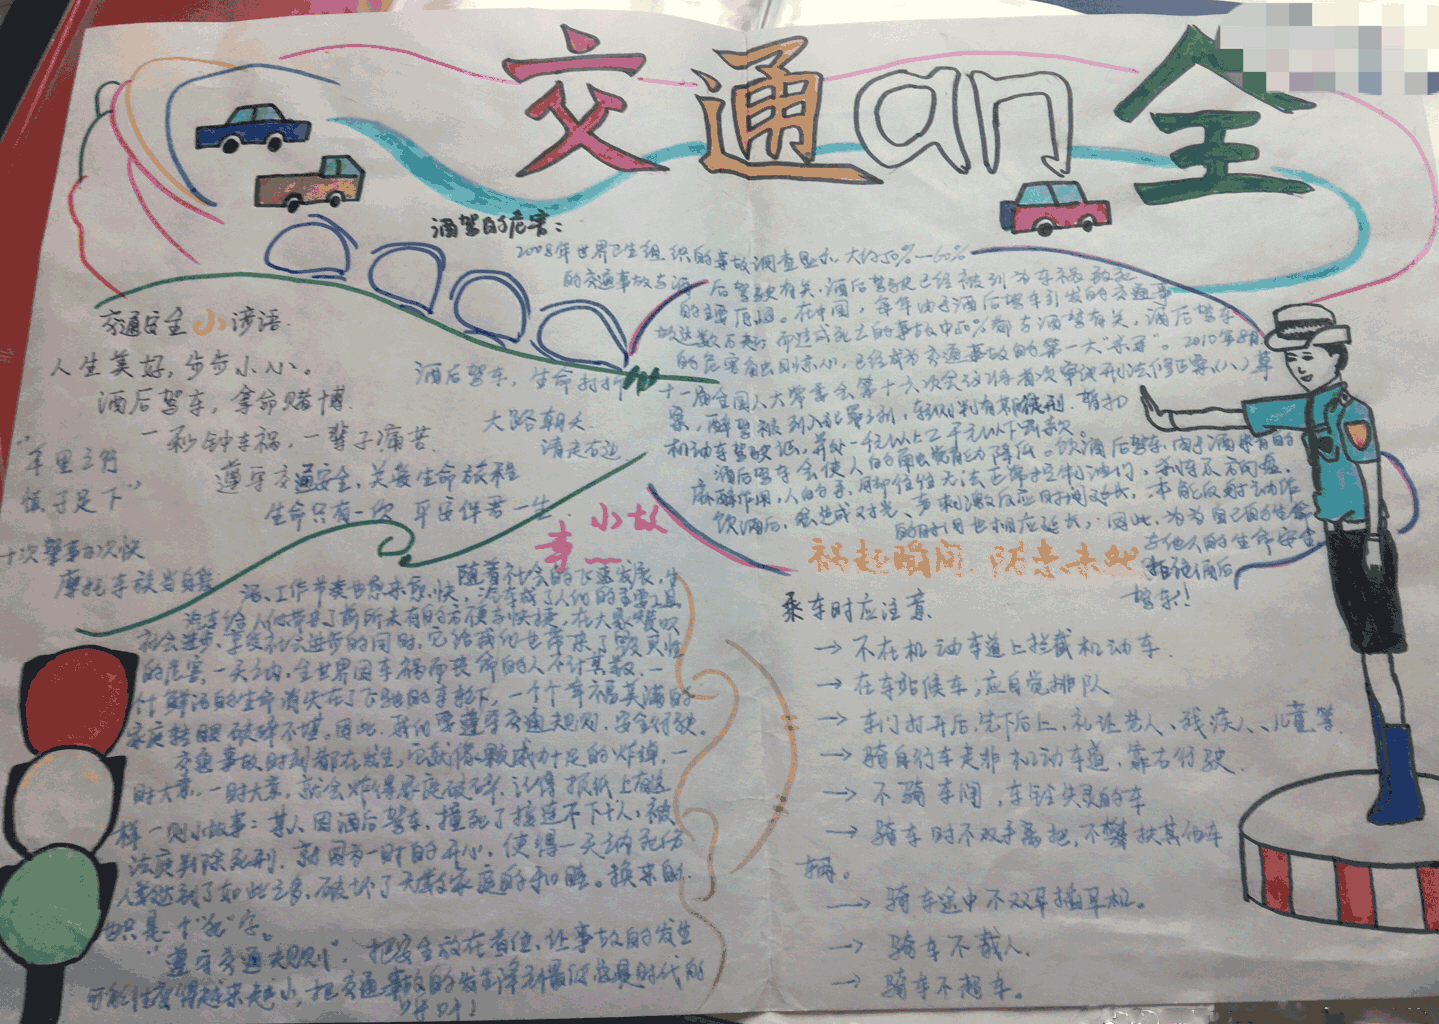 交通an全
酒驾的危害：
2008年世界卫生组织的事故调查显示,大约50%—60%
的交通事故与酒后驾驶有关,酒后驾驶已经被列为车祸致死
的主要原因。在中国,每年由于酒后驾车引发的交通事
故达数万起；而造成死亡的事故中50%都与酒驾有关,酒后驾车
的危害触目惊心,已经成为交通事故的第一大"杀手"。2010年8月,
十一届全国人大常委会第十六次会议将首次审议刑法修正案(八)草
案,醉驾被列入犯罪
机动车驾驶证,并处一千元以上二千元以下罚款。
酒后驾车会使人的触觉能力降低。饮酒后驾车,由于酒精的
麻醉作用,人的手、脚
饮酒后,
的时间也相应延长,因此,为了自己的生命
与他人的生命安全
拒绝酒后
驾车!
交通安全小谚语.
人生美好,步步小心。
酒后驾车,拿命赌博.
一秒钟车祸,一辈子痛苦
"千里之行
慎于足下"
遵守交通安全,关爱生命旅程
生命只有一次 平安伴君一生
十次肇事九次快
摩托车族当自爱
酒后驾车,生命打折
大路朝天
请走右边
小故
事
随着社会的飞速发展,生
活、工作节奏也愈来愈快,汽车成了人们的重要工具
汽车给人们带来了前所未有的方便与快捷,在大家嗟叹
社会进步,享受社会进步的同时,它给我们也带来了毁灭性
的危害,一天之内,全世界因车祸而丧命的人不计其数,一
个个鲜活的生命消失在了飞驰的车轮下,一个个幸福美满的
家庭转眼破碎不堪。因此,我们要遵守交通规则,安全行驶。
交通事故时刻都在发生,它就像颗威力十足的炸弹,一
时大意,一时大意,就会炸得家庭破碎,记得报纸上有这
样一则小故事：某人因酒后驾车,撞死了接连不下十人,被
法庭判除死刑,就因为一时的开心,使得一天之内死伤
人数达到了如此之多,破坏了无数家庭的和睦。换来的.
也只是一个"死"字。
"遵守交通规则",把安全放在首位,让事故的发生
可能性变得越来越小,把交通事故的发生降到最低
祸起瞬间,防患未然
乘车时应注意.
→ 不在机动车道上拦截机动车.
→ 在车站候车,应自觉排队
→ 车门打开后,先下后上,礼让老人、残疾人、儿童等.
→ 骑自行车走非机动车道,靠右行驶.
→ 不骑车闸,车铃失灵的车
→ 骑车时不双手离把,不攀扶其他车
辆。
→ 骑车途中不双耳插耳机。
→ 骑车不载人.
→ 骑车不超车。